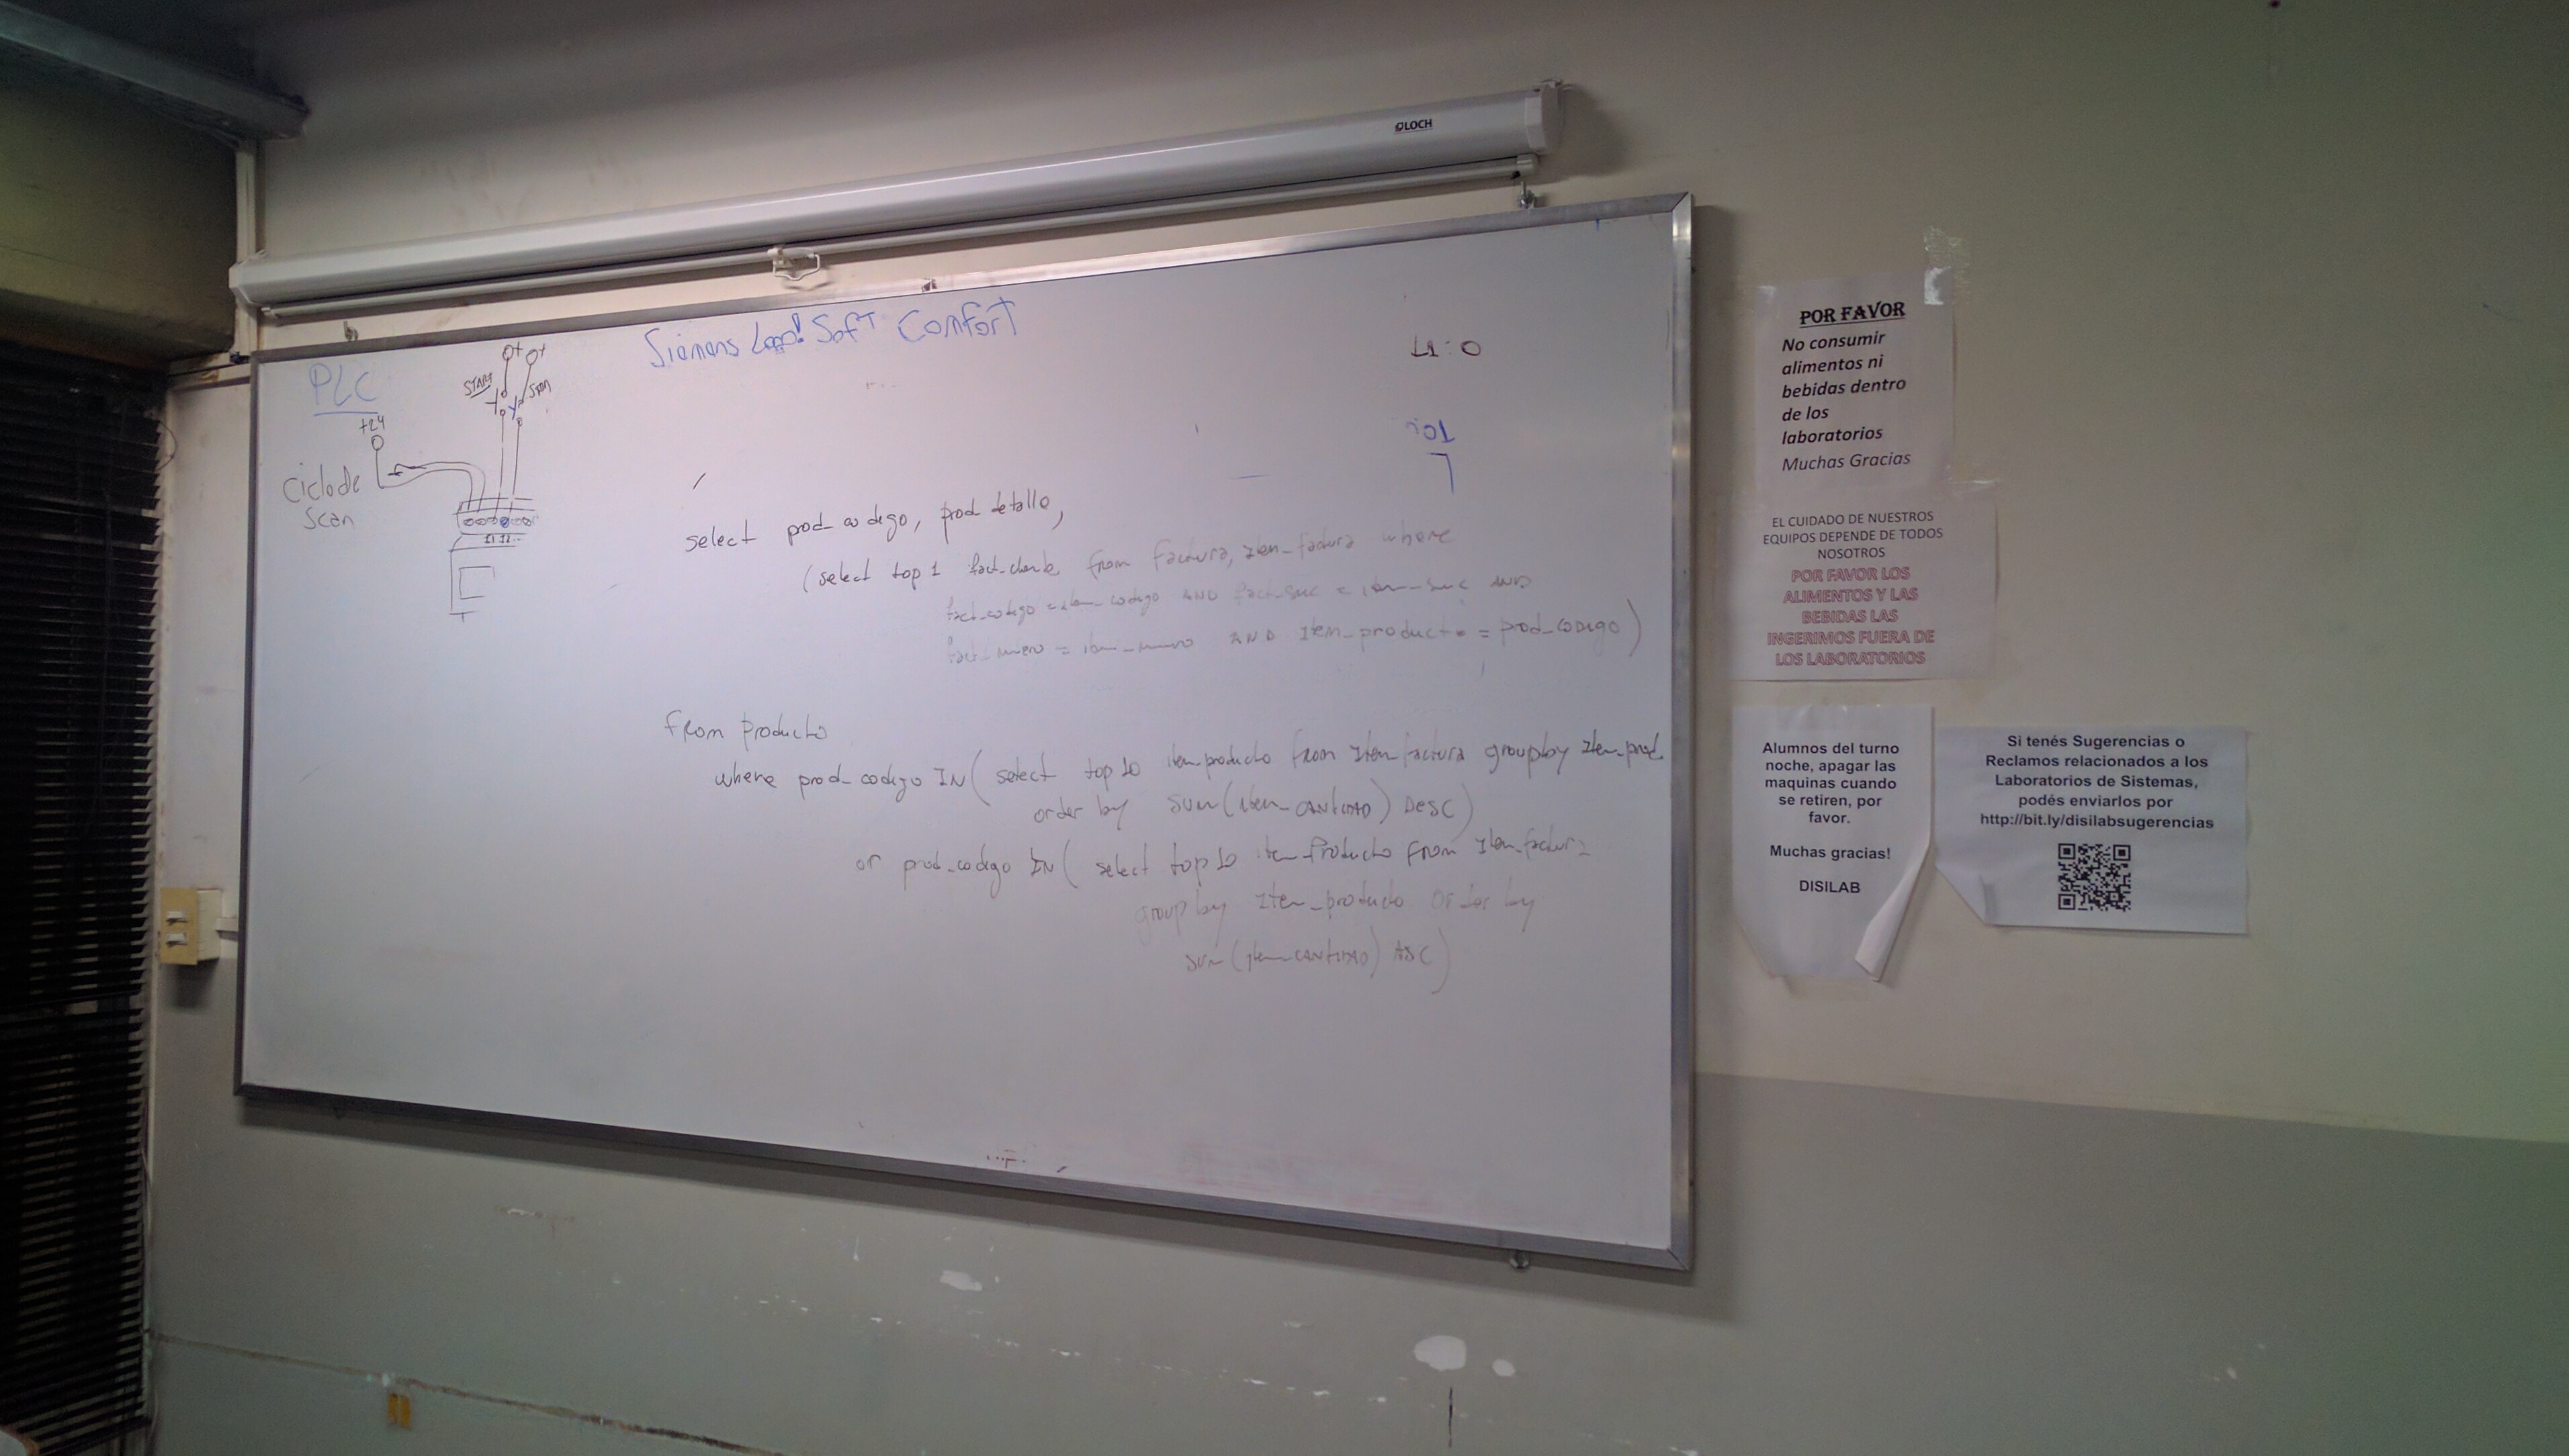 LOCH
Siemens Logo! Soft Comfort
PLC
START
+24
Ciclo de
Scan
I1 I2..
select prod_codigo, prod_detalle,
(select top 1 fact_cliente from factura, Item_factura where
fact_codigo = item_codigo AND fact_suc = item_suc AND
fact_numero = item_numero AND Item_producto = prod_codigo)
from producto
where prod_codigo IN ( select top 10 item_producto from Item_factura group by Item_prod.
order by sum(item_CANTIDAD) DESC)
or prod_codigo IN ( select top 10 item_Producto from Item_factura
group by Item_producto order by
sum(item_CANTIDAD) ASC)
POR FAVOR
No consumir
alimentos ni
bebidas dentro
de los
laboratorios
Muchas Gracias
EL CUIDADO DE NUESTROS
EQUIPOS DEPENDE DE TODOS
NOSOTROS
POR FAVOR LOS
ALIMENTOS Y LAS
BEBIDAS LAS
INGERIMOS FUERA DE
LOS LABORATORIOS
Alumnos del turno
noche, apagar las
maquinas cuando
se retiren, por
favor.
Muchas gracias!
DISILAB
Si tenés Sugerencias o
Reclamos relacionados a los
Laboratorios de Sistemas,
podés enviarlos por
http://bit.ly/disilabsugerencias